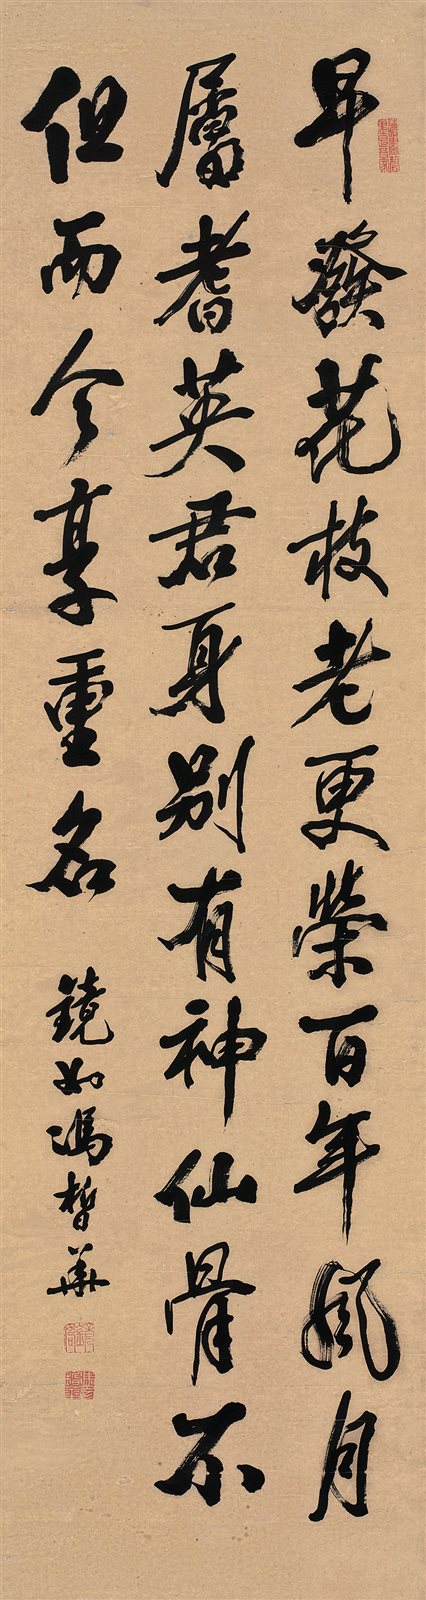 早發花枝老更榮百年風月
屬耆英君身別有神仙骨不
但而今享重名
鏡如馮晢華